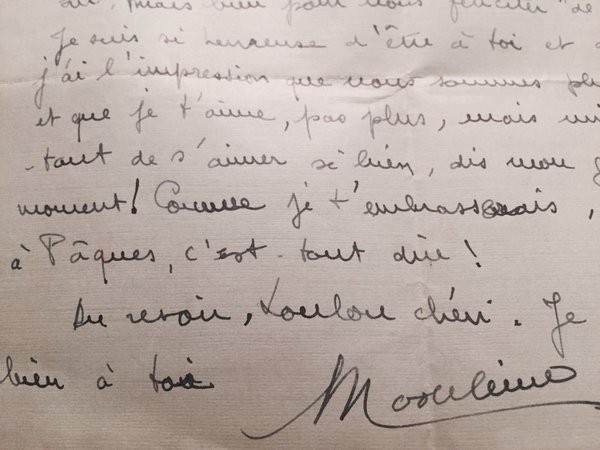 , mais bien pour nous féliciter "de
Je suis si heureuse d'être à toi et
j'ai l'impression que nous sommes plu
et que je t'aime, pas plus, mais mi
-tant de s'aimer si bien, dis mon
moment! Comme je t'embrasserais,
à Pâques, c'est tout dire!
Au revoir, Loulou chéri. Je
bien à toi
Madeleine